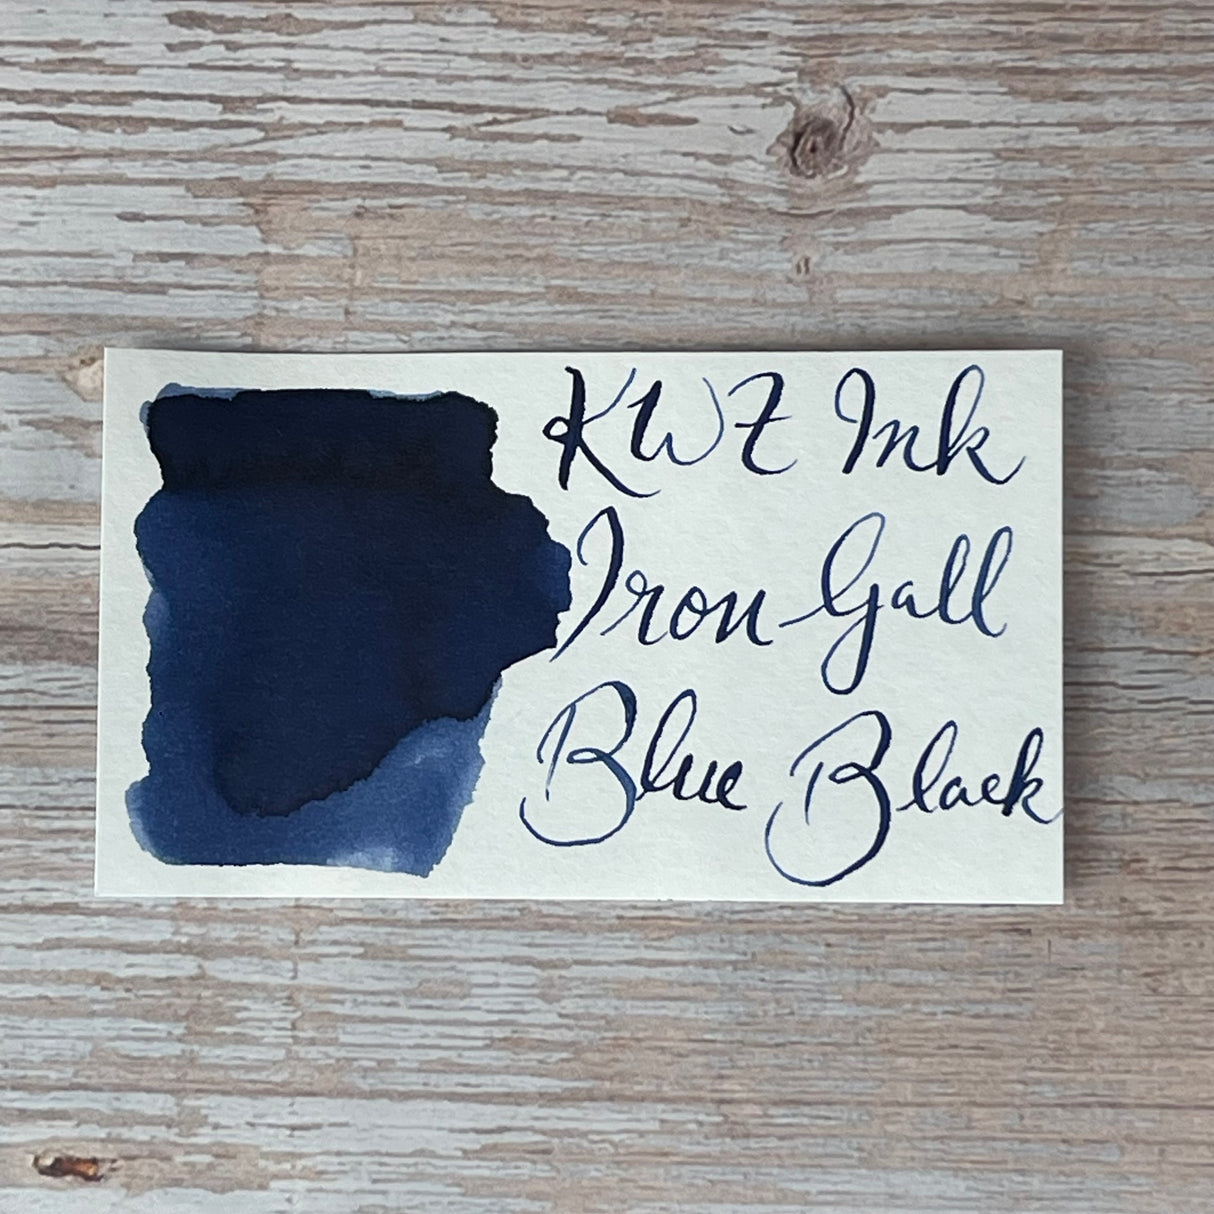 KWZ Ink
Iron-Gall
Blue Black